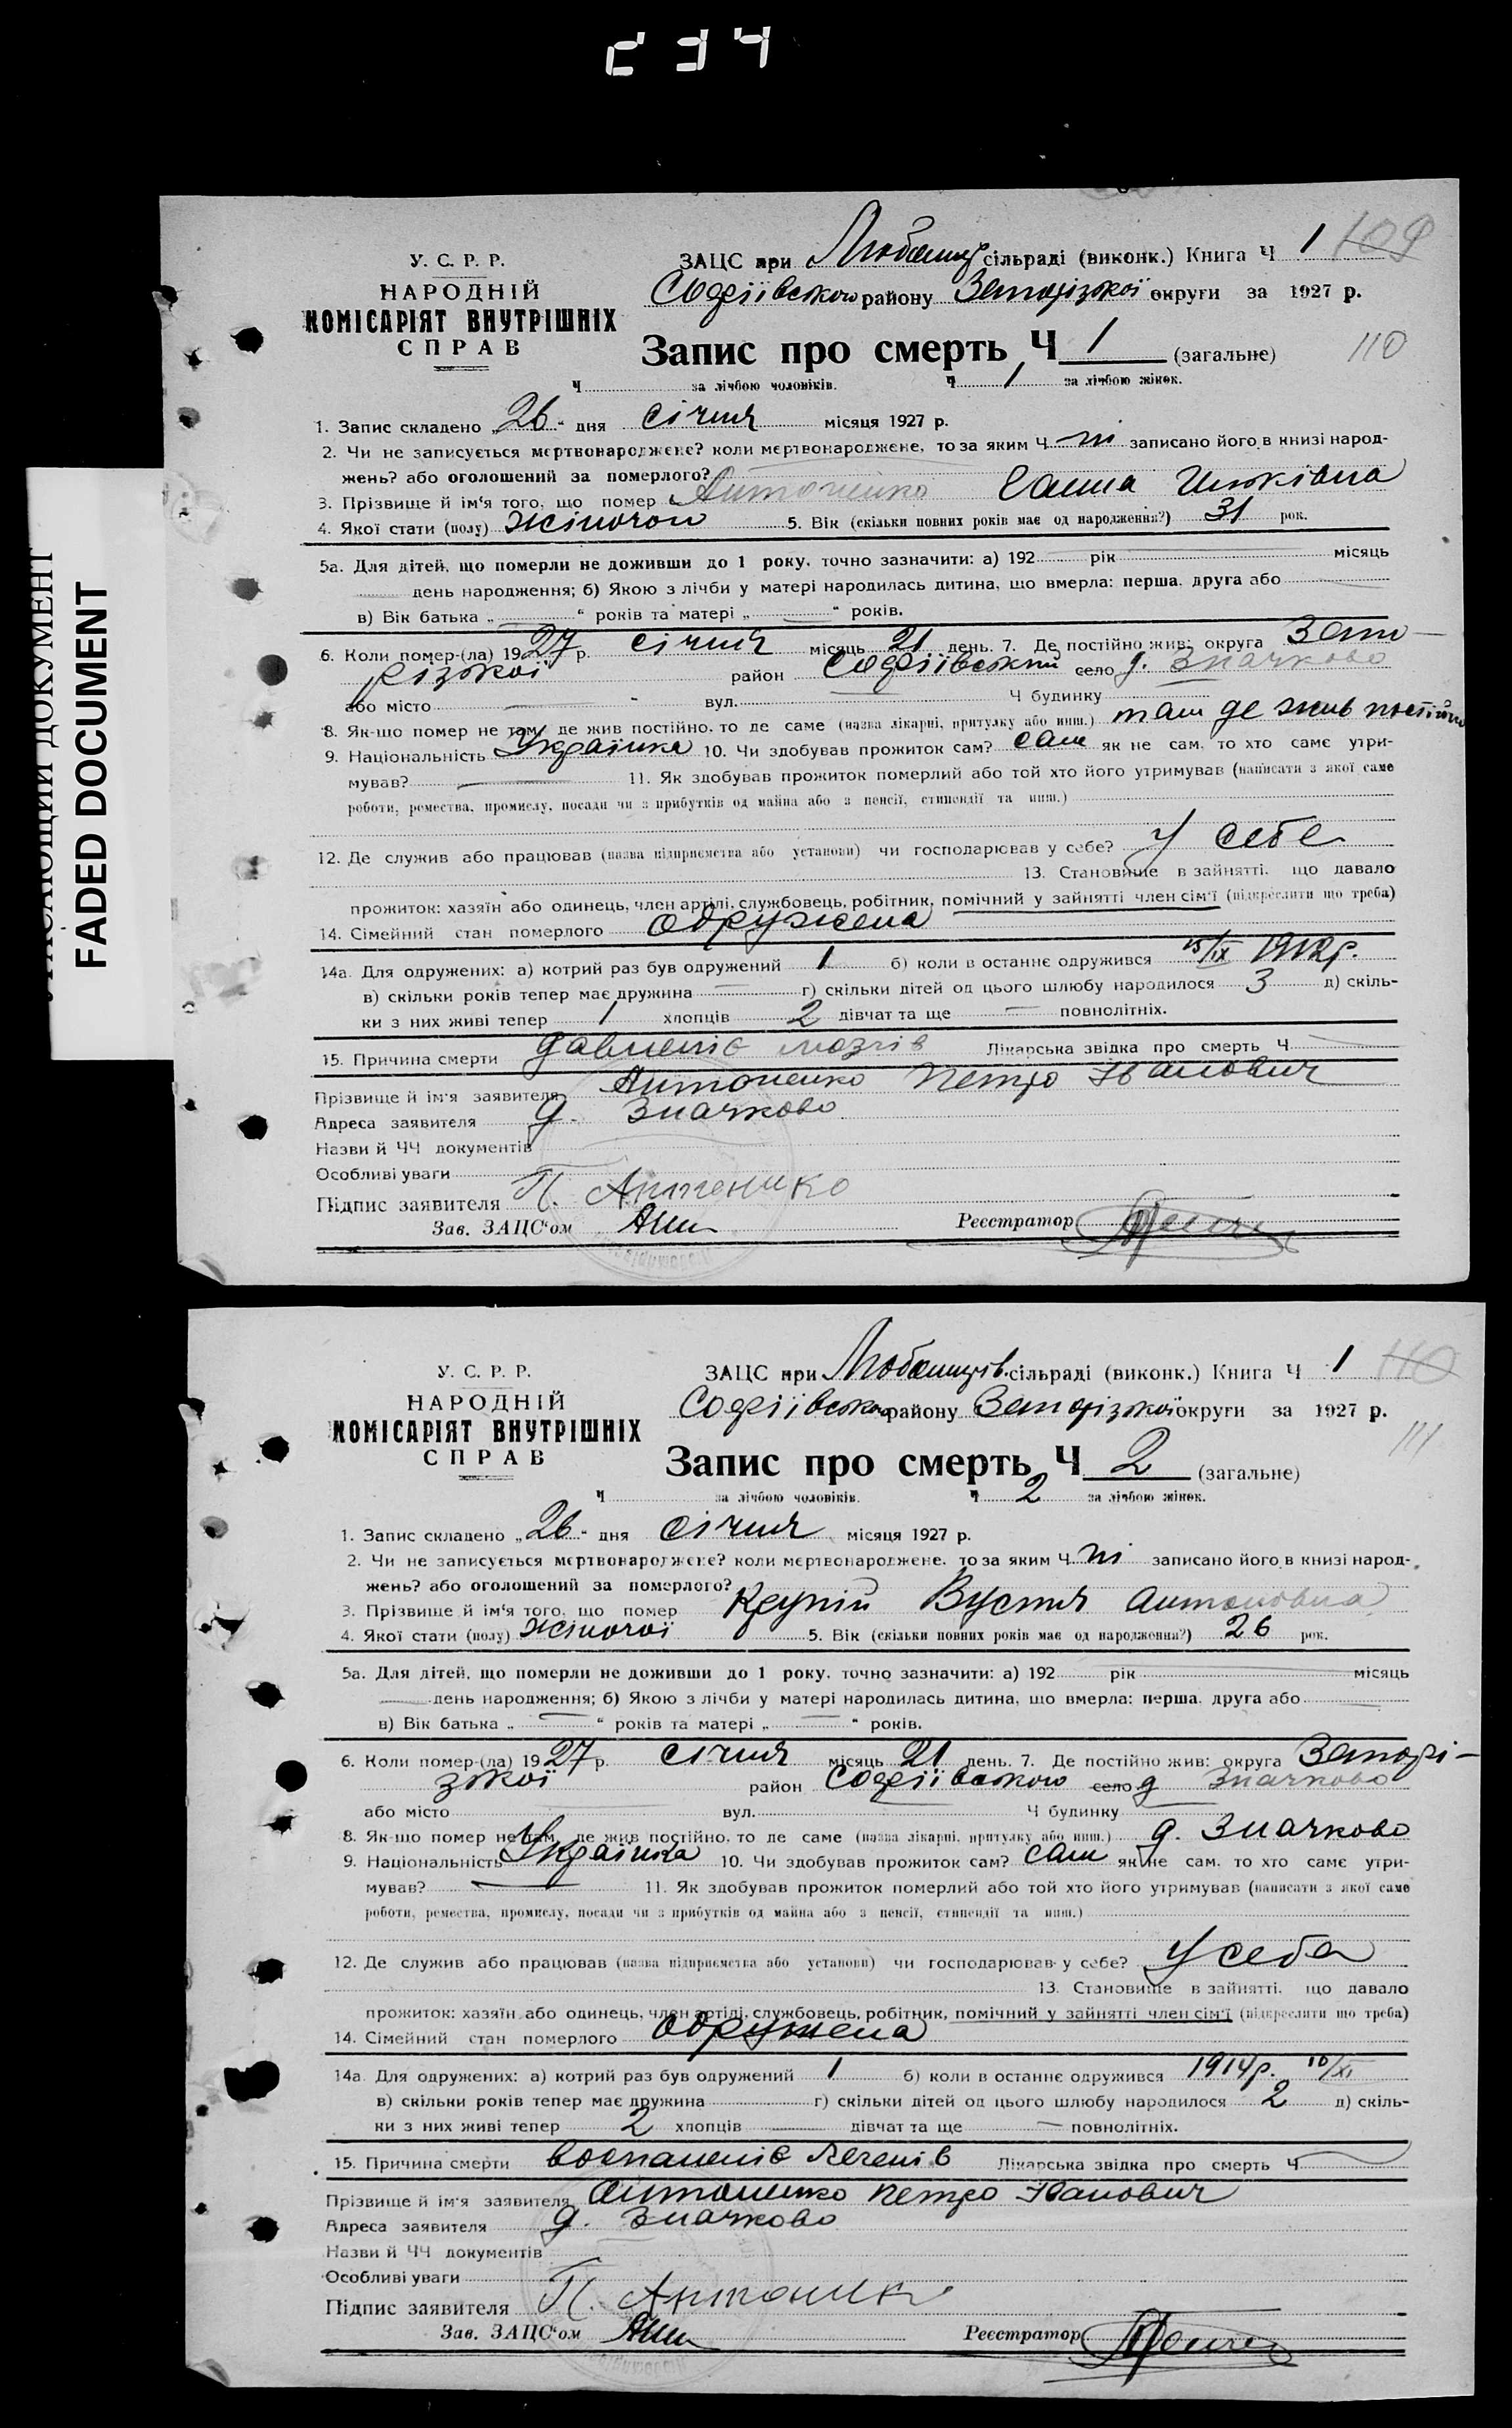 ВИСАЮЩИЙ ДОКУМЕНТ
FADED DOCUMENT
У. С. Р. Р.
НАРОДНІЙ
КОМІСАРІЯТ ВНУТРІШНІХ
СПРАВ
ЗАЦС при сільраді (виконк.) Книга Ч 1 109
Софіївського району Запорізької округи за 1927 р.
Запис про смерть Ч 1 (загальне) 110
Ч за лічбою чоловіків. Ч 1 за лічбою жінок.
1. Запис складено „26“ дня січня місяця 1927 р.
2. Чи не записується мертвонароджене? коли мертвонароджене, то за яким Ч ні записано його в книзі народ-
жень? або оголошений за померлого?
3. Прізвище й ім'я того, що помер Антоненко Ганна
4. Якої стати (полу) жіночои 5. Вік (скільки повних років має од народження?) 31 рок.
5а. Для дітей, що померли не доживши до 1 року, точно зазначити: а) 192 рік місяць
день народження; б) Якою з лічби у матері народилась дитина, що вмерла: перша, друга або
в) Вік батька „ “ років та матері „ “ років.
6. Коли помер-(ла) 1927 р. січня місяць 21 день. 7. Де постійно жив: округа Запо-
різької район Софіївський село д. Значково
або місто вул. Ч будинку
8. Як-що помер не там, де жив постійно, то де саме (назва лікарні, притулку або инш.) там де жив постійно
9. Національність Українка 10. Чи здобував прожиток сам? сам як не сам, то хто саме утри-
мував? 11. Як здобував прожиток померлий або той хто його утримував (написати з якої саме
роботи, ремества, промислу, посади чи з прибутків од майна або з пенсії, стипендії та инш.)
12. Де служив або працював (назва підприємства або установи) чи господарював у себе? У себе
13. Становище в зайнятті, що давало
прожиток: хазяїн або одинець, член артілі, службовець, робітник, помічний у зайнятті член сім'ї (підкреслити що треба)
14. Сімейний стан померлого одружена
14а. Для одружених: а) котрий раз був одружений 1 б) коли в останнє одружився 15/IX 1912р.
в) скільки років тепер має дружина г) скільки дітей од цього шлюбу народилося 3 д) скіль-
ки з них живі тепер 1 хлопців 2 дівчат та ще повнолітніх.
15. Причина смерти давленіє мозгів Лікарська звідка про смерть Ч
Прізвище й ім'я заявителя Антоненко Петро Іванович
Адреса заявителя д. Значково
Назви й ЧЧ документів
Особливі уваги
Підпис заявителя П. Антоненко
Зав. ЗАЦС'ом Реєстратор
У. С. Р. Р.
НАРОДНІЙ
КОМІСАРІЯТ ВНУТРІШНІХ
СПРАВ
ЗАЦС при сільраді (виконк.) Книга Ч 1 110
Софіївського району Запорізької округи за 1927 р.
111
Запис про смерть Ч 2 (загальне)
Ч за лічбою чоловіків. Ч 2 за лічбою жінок.
1. Запис складено „26“ дня січня місяця 1927 р.
2. Чи не записується мертвонароджене? коли мертвонароджене, то за яким Ч ні записано його в книзі народ-
жень? або оголошений за померлого?
3. Прізвище й ім'я того, що помер Крупій Вустя Антоновна
4. Якої стати (полу) жіночої 5. Вік (скільки повних років має од народження?) 26 рок.
5а. Для дітей, що померли не доживши до 1 року, точно зазначити: а) 192 рік місяць
день народження; б) Якою з лічби у матері народилась дитина, що вмерла: перша, друга або
в) Вік батька „ “ років та матері „ “ років.
6. Коли помер-(ла) 1927 р. січня місяць 21 день. 7. Де постійно жив: округа Запорі-
зької район Софіївського село д Значково
або місто вул. Ч будинку
8. Як-що помер не там, де жив постійно, то де саме (назва лікарні, притулку або инш.) д. Значково
9. Національність Українка 10. Чи здобував прожиток сам? сам як не сам, то хто саме утри-
мував? 11. Як здобував прожиток померлий або той хто його утримував (написати з якої саме
роботи, ремества, промислу, посади чи з прибутків од майна або з пенсії, стипендії та инш.)
12. Де служив або працював (назва підприємства або установи) чи господарював у себе? У себа
13. Становище в зайнятті, що давало
прожиток: хазяїн або одинець, член артілі, службовець, робітник, помічний у зайнятті член сім'ї (підкреслити що треба)
14. Сімейний стан померлого одружена
14а. Для одружених: а) котрий раз був одружений 1 б) коли в останнє одружився 1914р. 10/XI
в) скільки років тепер має дружина г) скільки дітей од цього шлюбу народилося 2 д) скіль-
ки з них живі тепер 2 хлопців дівчат та ще повнолітніх.
15. Причина смерти воспаленіє Легенів Лікарська звідка про смерть Ч
Прізвище й ім'я заявителя Антоненко Петро Іванович
Адреса заявителя д. Значково
Назви й ЧЧ документів
Особливі уваги
Підпис заявителя П. Антонек
Зав. ЗАЦС'ом Реєстратор